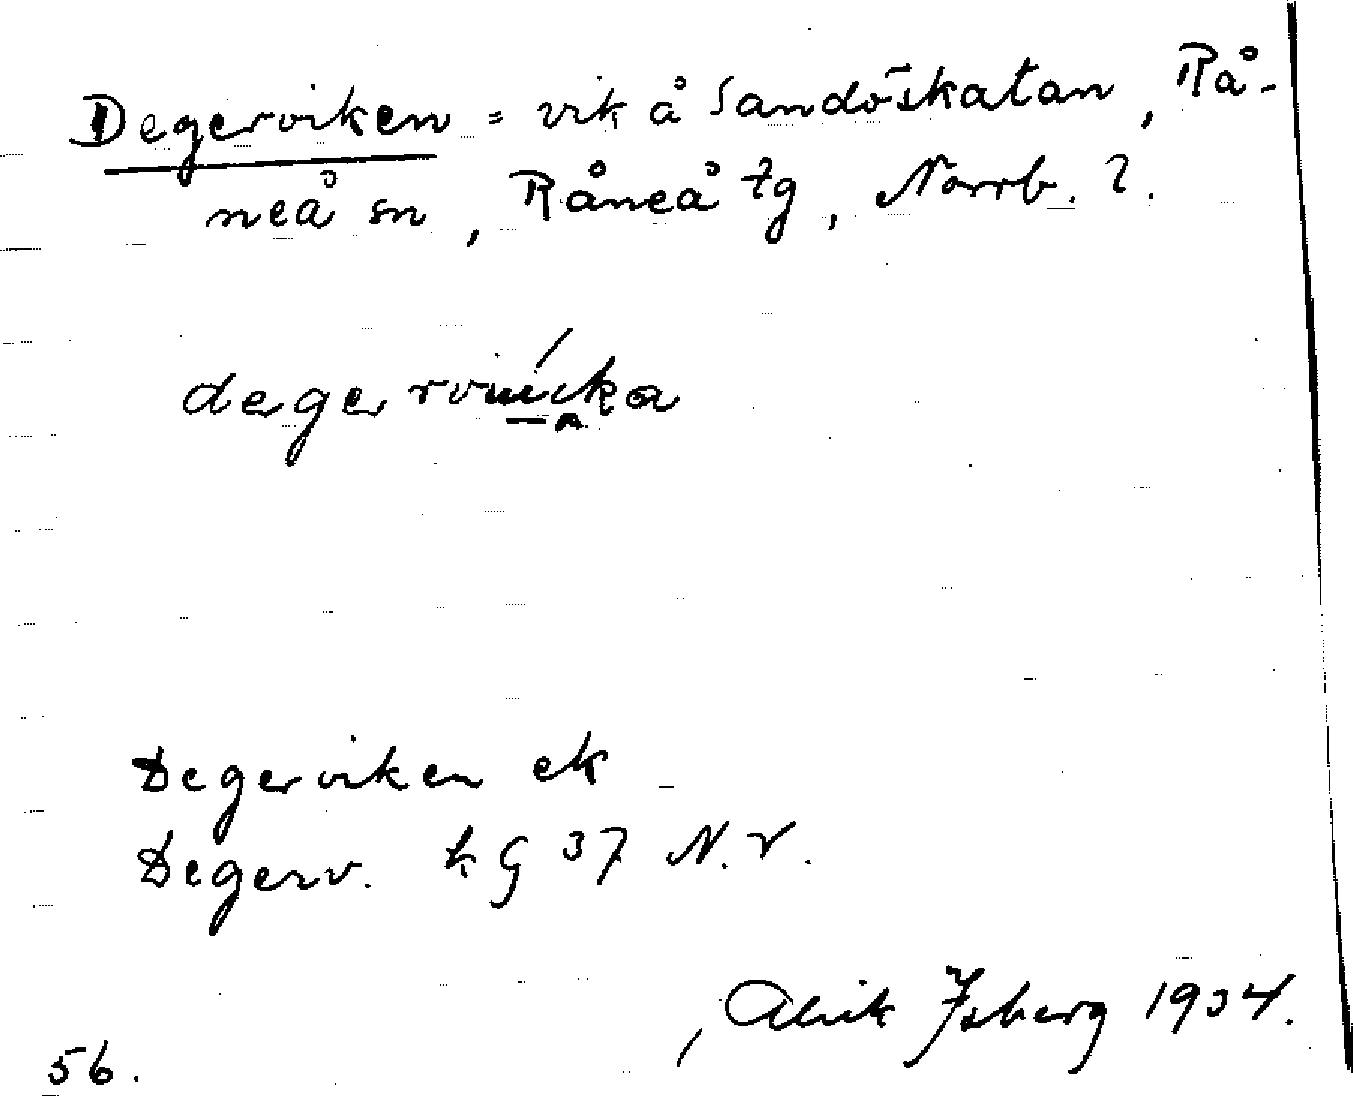 Degerviken = vik å Sandöskatan, Rå-
neå sn, Råneå tg, Norrb. l.
Degerviken ek
Degerv. kG 37 N.V.
Alrik Isberg 1934.
56.